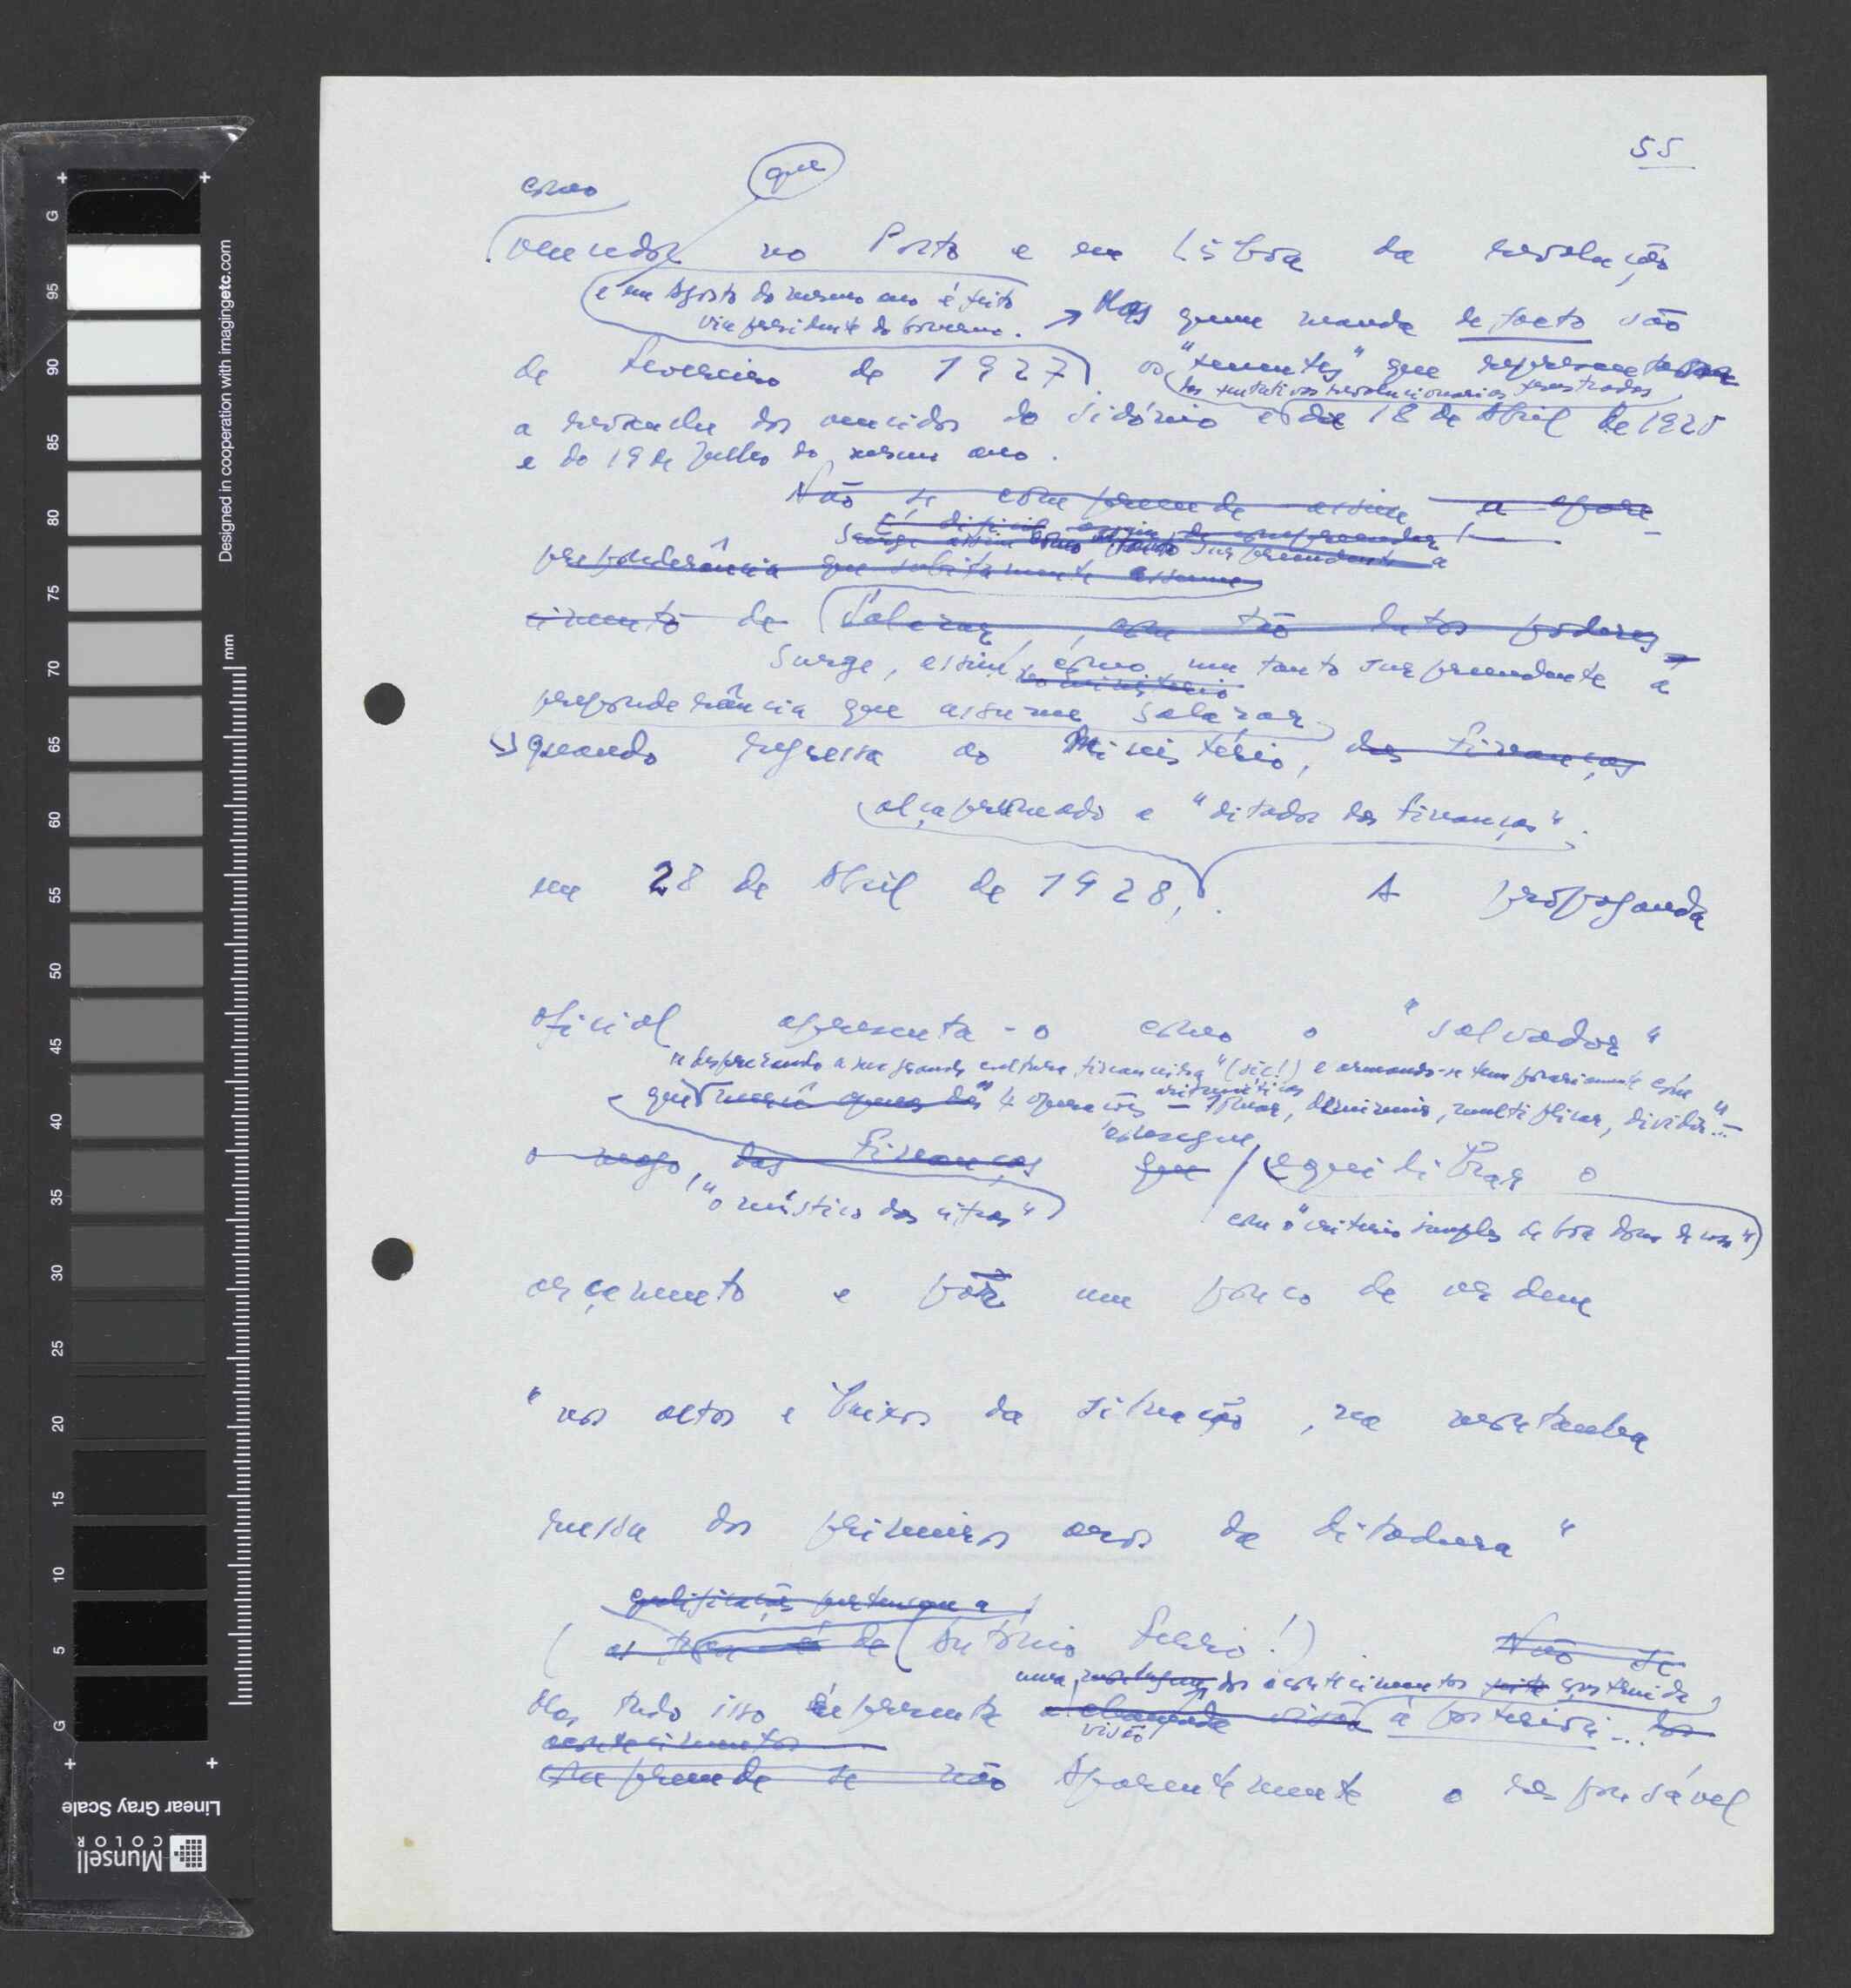 55
como
que
vencedor no Porto e em Lisboa da revolução
e em Agosto do mesmo ano é feito
vice presidente do Governo. → Mas quem manda de facto são
de Fevereiro de 1927. os "tenentes" que representam
das tentativas revolucionárias frustradas
a revanche dos vencidos do Sidónio e de 18 de Abril de 1925
e do 19 de Julho do mesmo ano.
Não se compreende assim a apare-
É difícil assim de compreender!
Surge assim como tanto surpreendente a
preponderância que subitamente assume
cimento de Salazar, com tão latos poderes
Surge, assim, como um tanto surpreendente a
no ministério
preponderância que assume Salazar
quando regressa ao Ministério, das Finanças
alcapremado a "ditador das Finanças".
em 28 de Abril de 1928, . A propaganda
oficial apresenta-o como o "salvador"
"desprezando a sua grande cultura financeira" (sic!) e armando-se temporariamente com
aritméticas
que 4 operações — somar, diminuir, multiplicar, dividir..." —
consegue
o mago, das Finanças que equilibrar o
"o místico das cifras"
com o "critério simples de boa dona de casa"
orçamento e pôr um pouco de ordem
"nos altos e baixos da situação, na montanha
russa dos primeiros anos da ditadura"
qualificação pertence a
( de (António Ferro!). Não se
uma montagem dos acontecimentos construída
Mas tudo isso representa a chamada visão à posteriori... dos
visão
acontecimentos
compreende se não Aparentemente o responsável